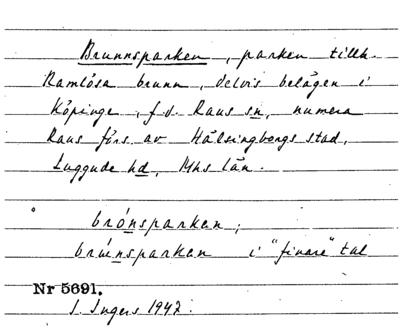 Brunnsparken, parken tillh.
Ramlösa brunn, delvis belägen i
Köpinge, f.d. Raus sn, numera
Raus förs. av Hälsingborgs stad,
Luggude hd, Mhs län.
brónsparken;
i "finare" tal
Nr 5691.
I. Ingers 1947.